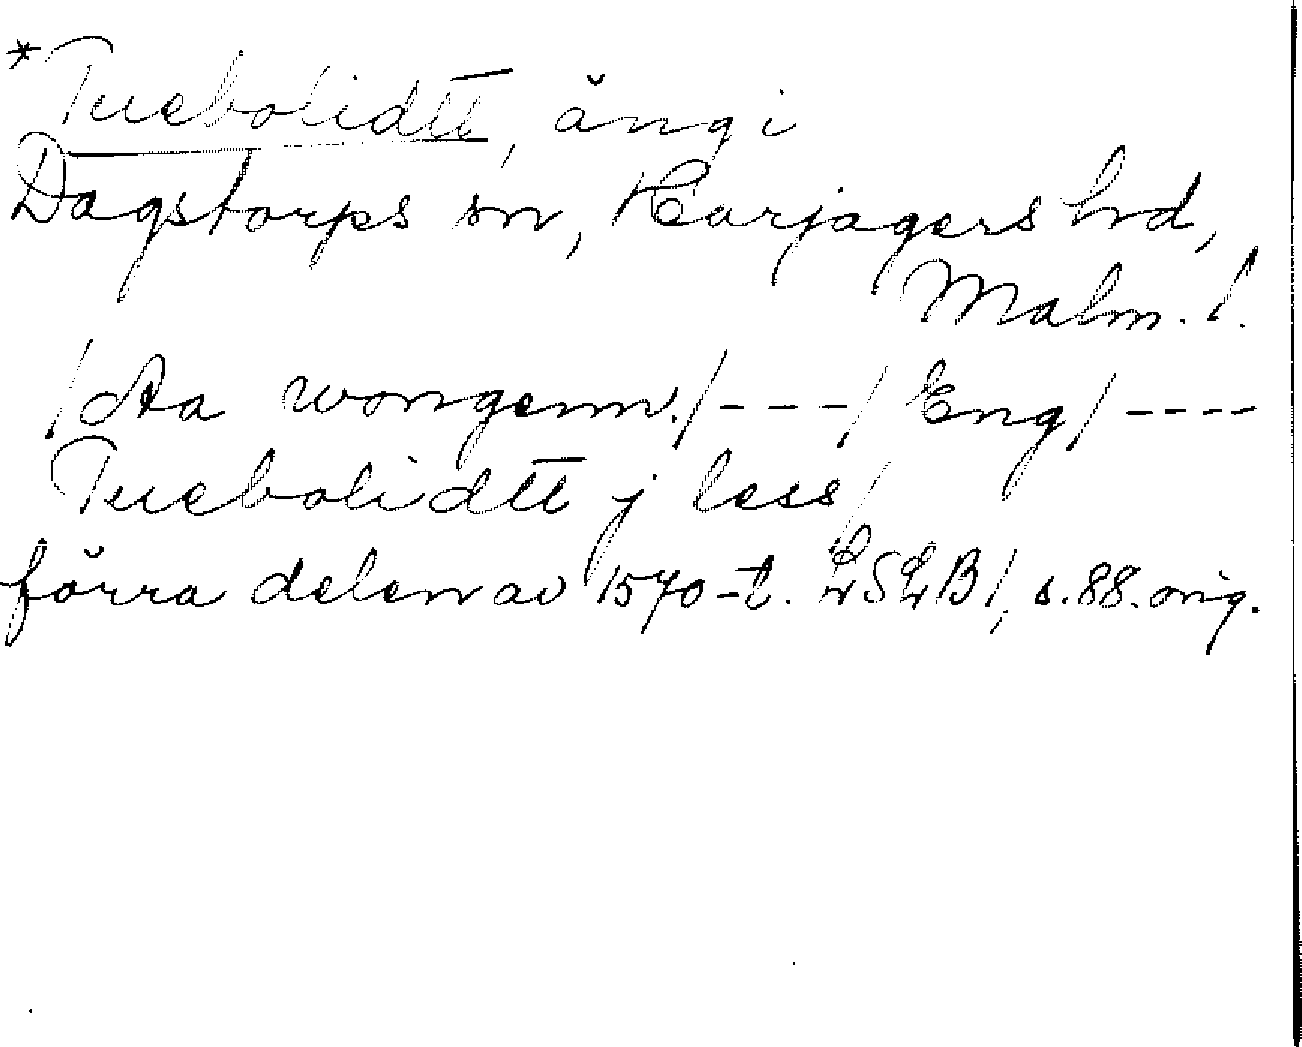 *Tuebolidtt, äng i
Dagstorps sn, Harjagers hd,
Malm. l.
/Aa wongenn./---/Eng/----
Tuebolidtt j less/
förra delen av 1570-t. LSLB1, s. 88. orig.